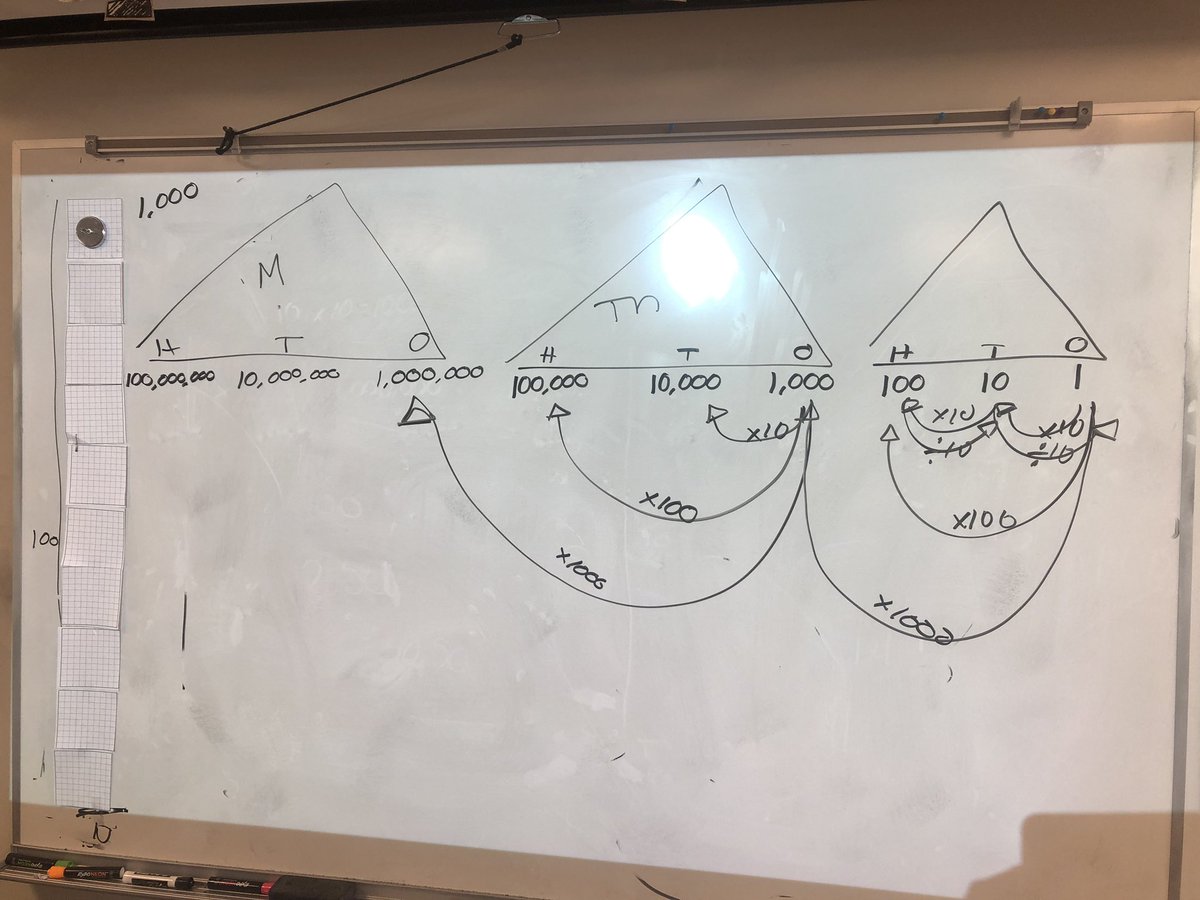 1,000
M
H T O
100,000,000 10,000,000 1,000,000
Th
H T O
100,000 10,000 1,000
H T O
100 10 1
x10
x100
x1000
x10 x10
÷10 ÷10
x100
x1000
100
10